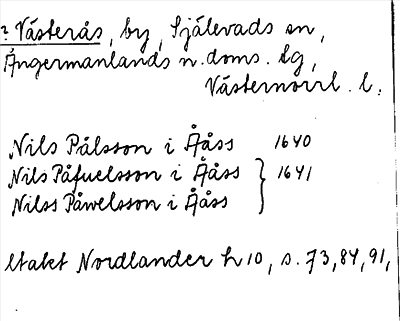 ? Västerås, by, Själevads sn,
Ångermanlands n. doms. lg,
Västernorrl. l.
Nils Pålsson i Ååss 1640
Nils Påfuelsson i Ååss } 1641
Nilss Påwelsson i Ååss
Utakt Nordlander h 10, s. 73, 84, 91,